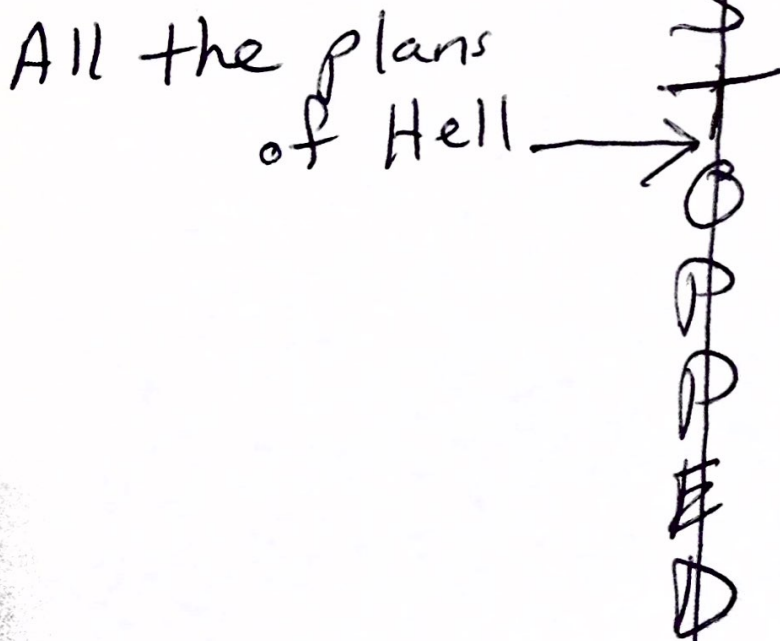 All the plans
of Hell
S
T
O
P
P
E
D